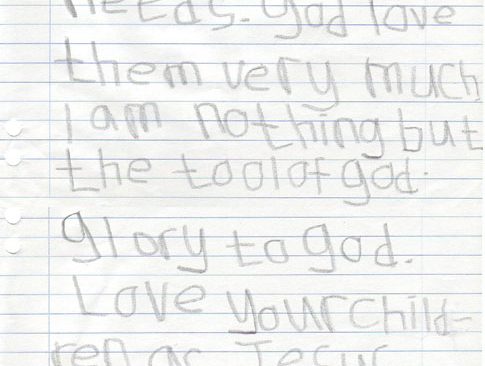 needs. God love
them very much
I am nothing but
the tool of god.
glory to god.
Love your child-
ren as Jesus